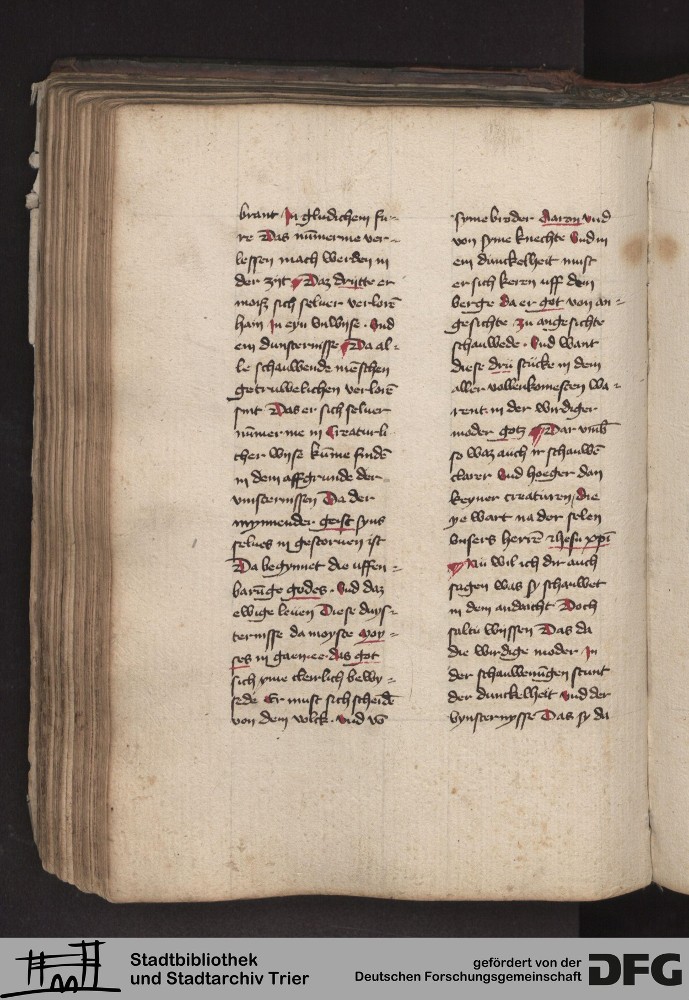 brant In gludichem fu-
re Das nūmerme ver-
lessen mach werden in
der zijt Daz dritte er
moiß sich seluer verlorē
hain In eyn vnwise. Vnd
ein dunsternisse Da al-
le schauwende mēschen
getruwelichen verlorē
sint Das er sich seluer
nūmer me in Creaturli
cher wijse kūme findē
in dem affgrunde der
vinsternissen Da der
mynnender geist syns
selues in gestoruen ist
Da begynnet die uffen-
barūge godes. Vnd daz
ewige leuen Diese duys-
ternisse da moyste Moy-
ses in gaen ee das got
sich yme clerlich bewy-
sede Er must sich scheidē
von dem volck. Vnd vō
syme broder Aaron vnd
von syme knechte Vnd in
ein dunckelheit must
er sich keren uff den
berge da er got von an-
gesichte zu angesichte
schauwede. Vnd want
diese drij stücke in dem
aller vollenkomesten wa-
rent in der wirdiger
moder gotz Dar vmb
so waz auch ir schauwē
clarer Vnd hoeger dan
keyner creaturen die
ye wart na der selen
vnsers herrē ihesu xpi
Nu wil ich dir auch
sagen was sy schauwet
in dem andaicht Doch
saltu wissen Das da
die wirdige moder In
der schauwenūgen stunt
der dunckelheit Vnd der
vynsternysse Das sy da
Stadtbibliothek
und Stadtarchiv Trier
gefördert von der
Deutschen Forschungsgemeinschaft
DFG